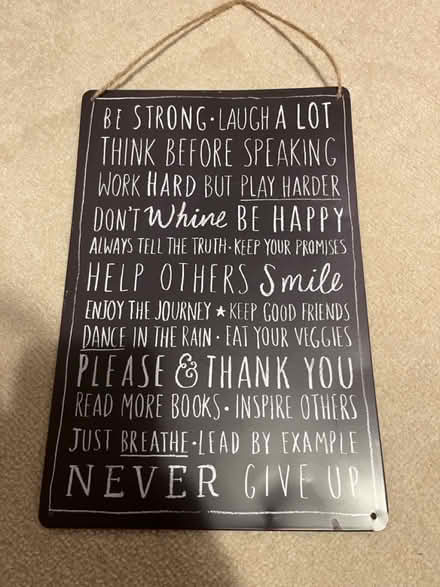 BE STRONG · LAUGH A LOT
THINK BEFORE SPEAKING
WORK HARD BUT PLAY HARDER
DON'T Whine BE HAPPY
ALWAYS TELL THE TRUTH · KEEP YOUR PROMISES
HELP OTHERS Smile
ENJOY THE JOURNEY ★ KEEP GOOD FRIENDS
DANCE IN THE RAIN · EAT YOUR VEGGIES
PLEASE & THANK YOU
READ MORE BOOKS · INSPIRE OTHERS
JUST BREATHE · LEAD BY EXAMPLE
NEVER GIVE UP